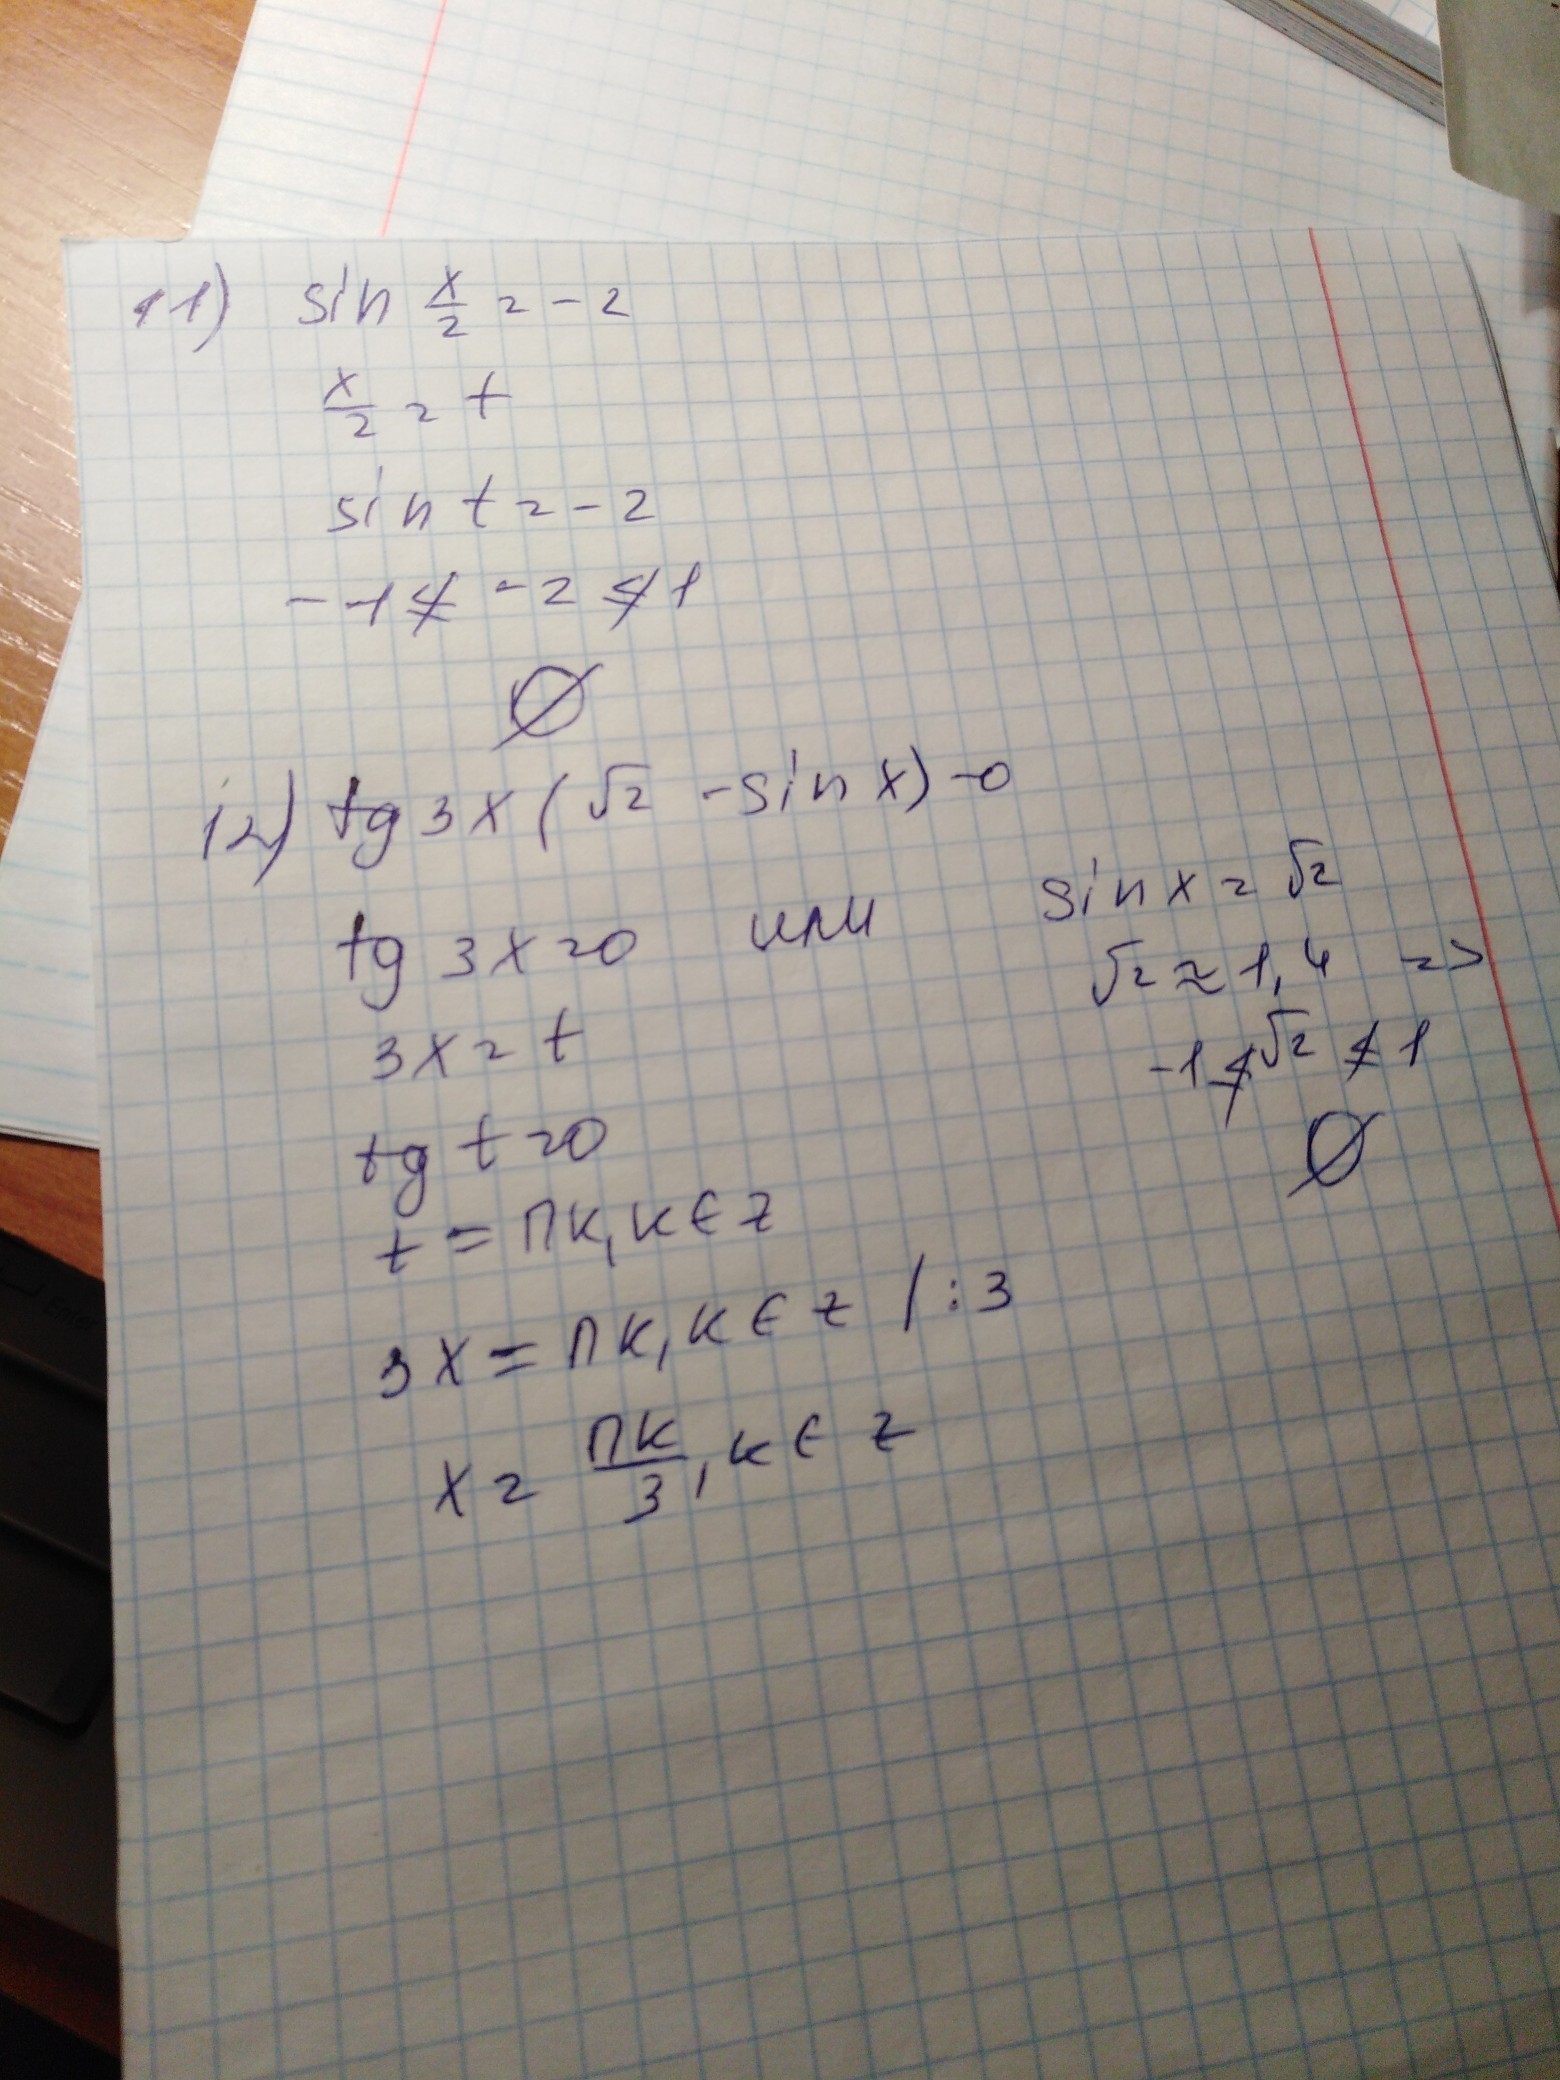 11) sin x/2 = -2
x/2 = t
sin t = -2
-1 ≰ -2 ≰ 1
∅
12) tg 3x (√2 - sin x) = 0
tg 3x = 0 или sin x = √2
√2 ≈ 1,4 =>
-1 ≰ √2 ≰ 1
∅
3x = t
tg t = 0
t = πк, к ∈ Z
3x = πк, к ∈ Z / : 3
x = πк/3, к ∈ Z